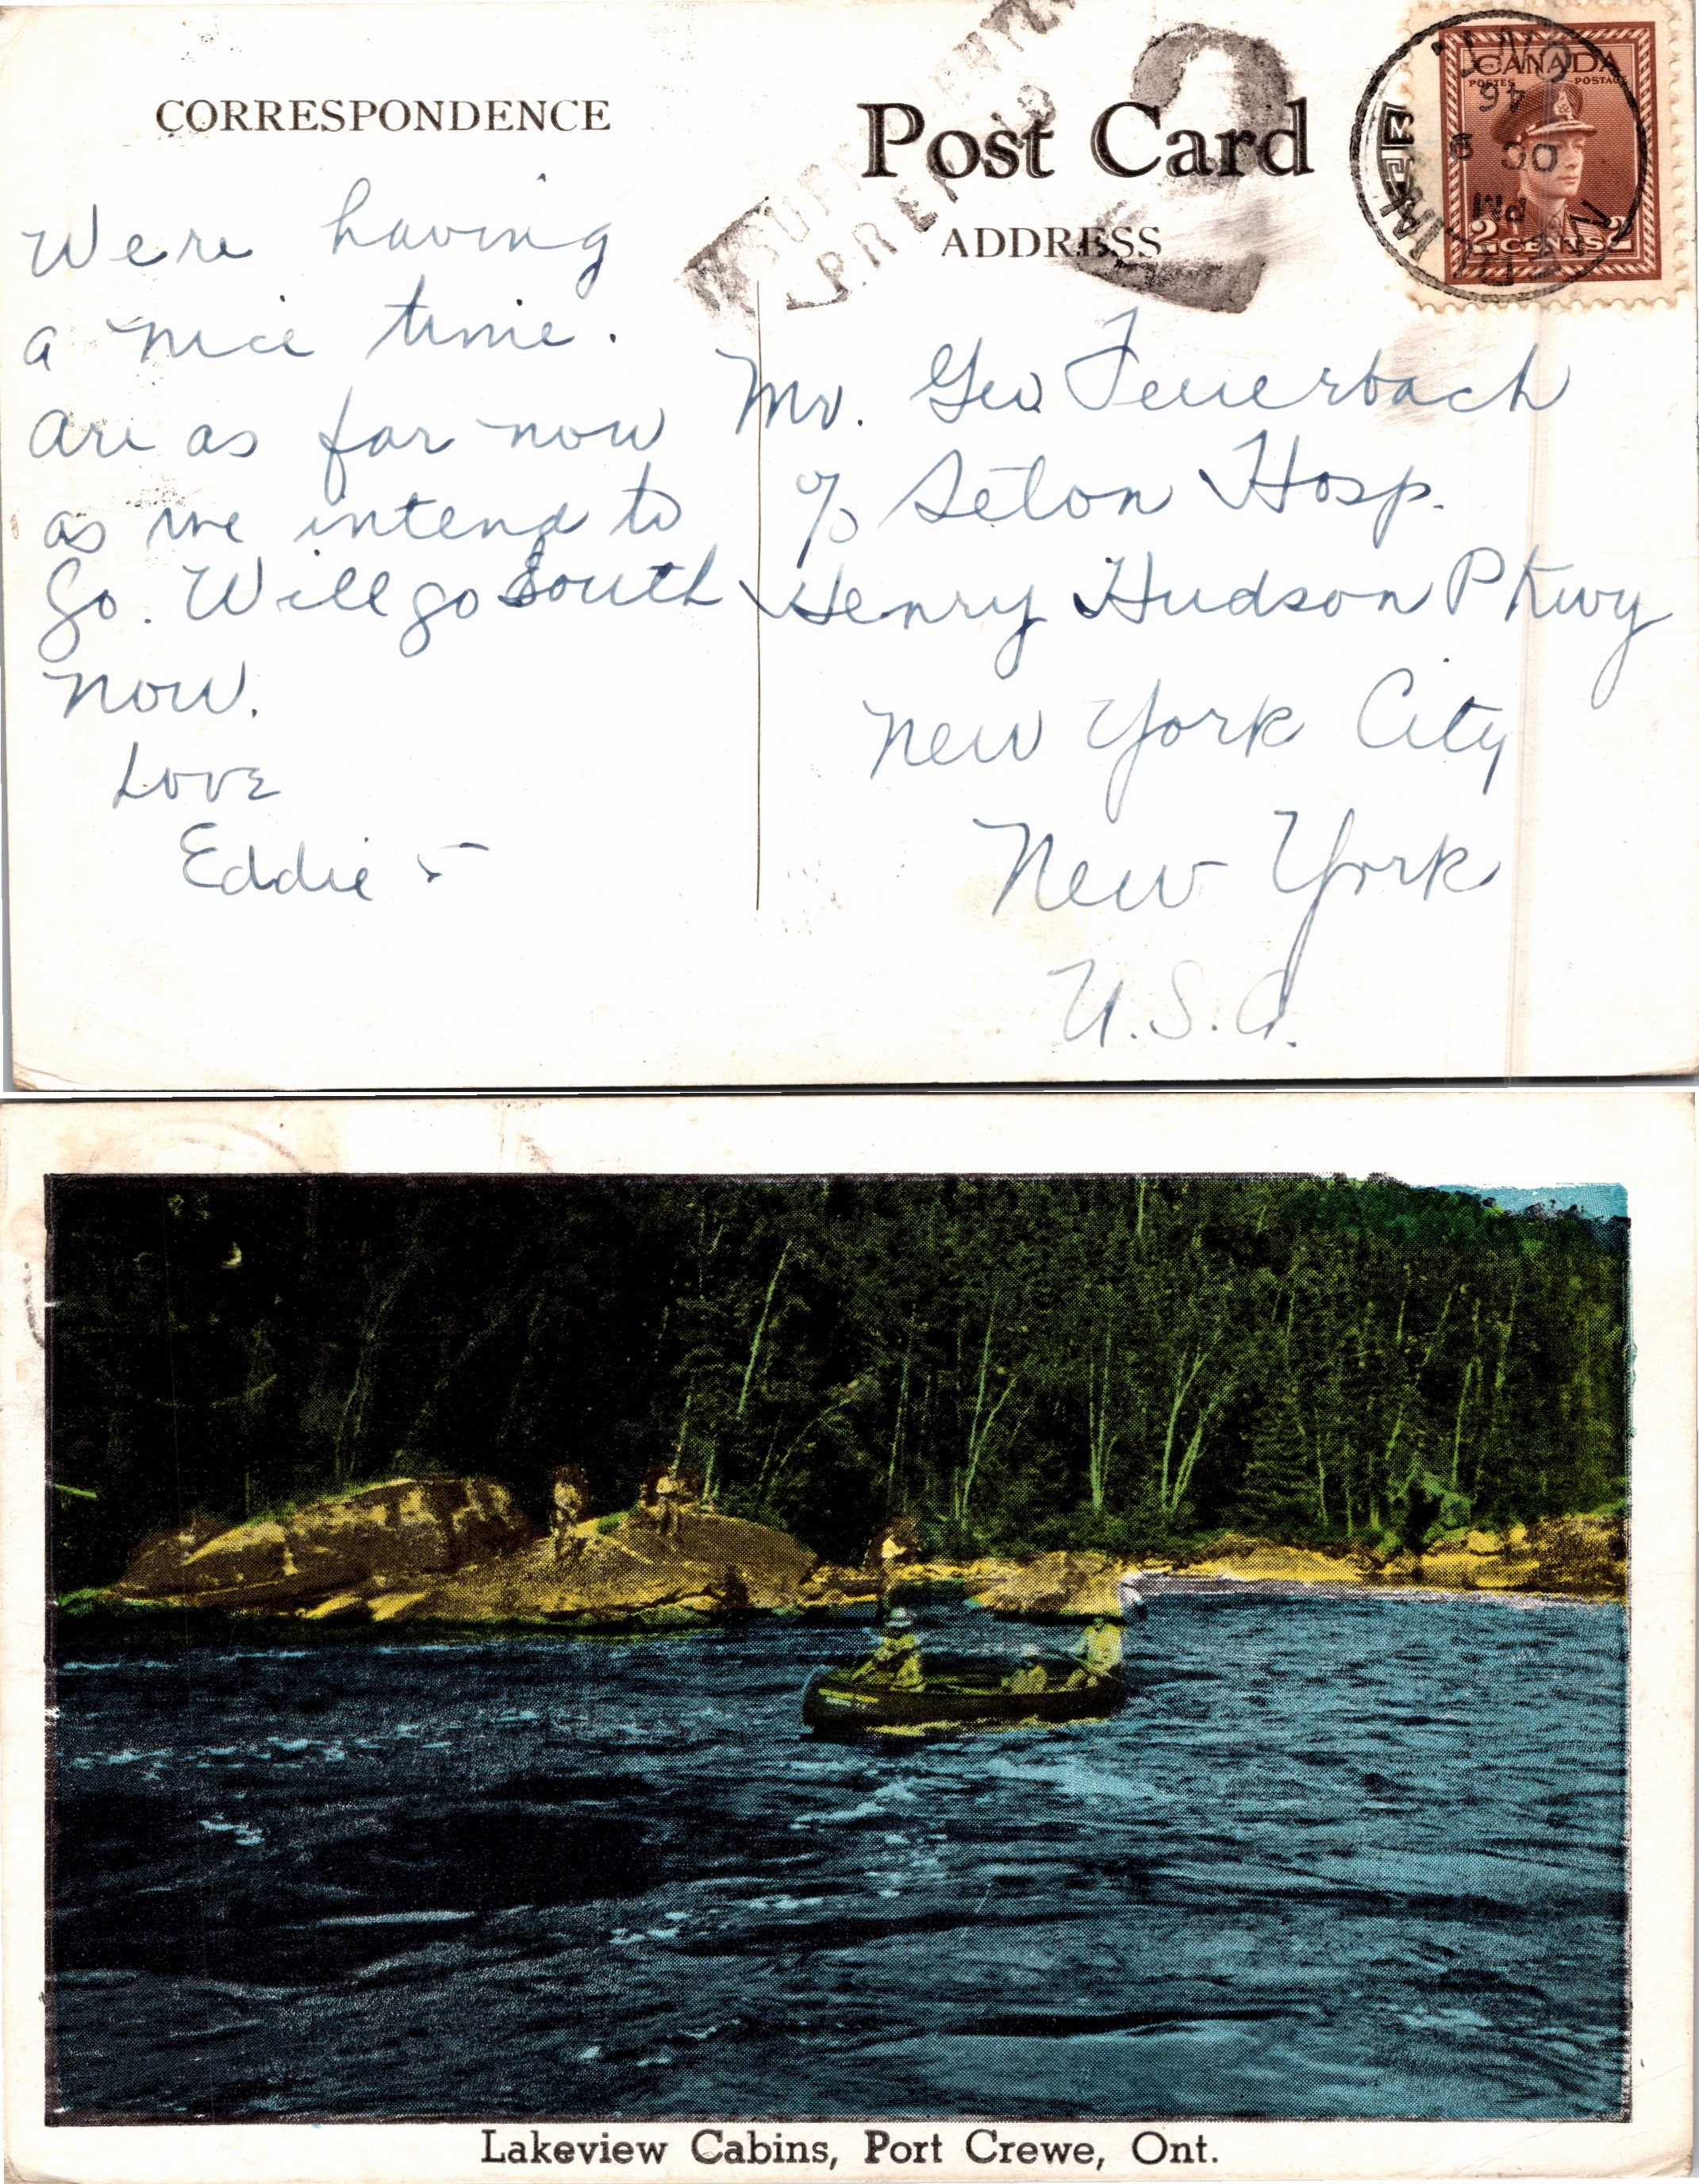 CORRESPONDENCE
Were having
a nice time.
are as far now
as we intend to
go. Will go South
now.
Love
Eddie
Post Card
ADDRESS
PREPAID
CANADA
POSTES POSTAGE
2 CENTS 2
ONT.
46
OC 9
PM
Mr. Geo Feuerbach
c/o Seton Hosp.
Henry Hudson Pkwy
New York City
New York
U.S.A.
Lakeview Cabins, Port Crewe, Ont.